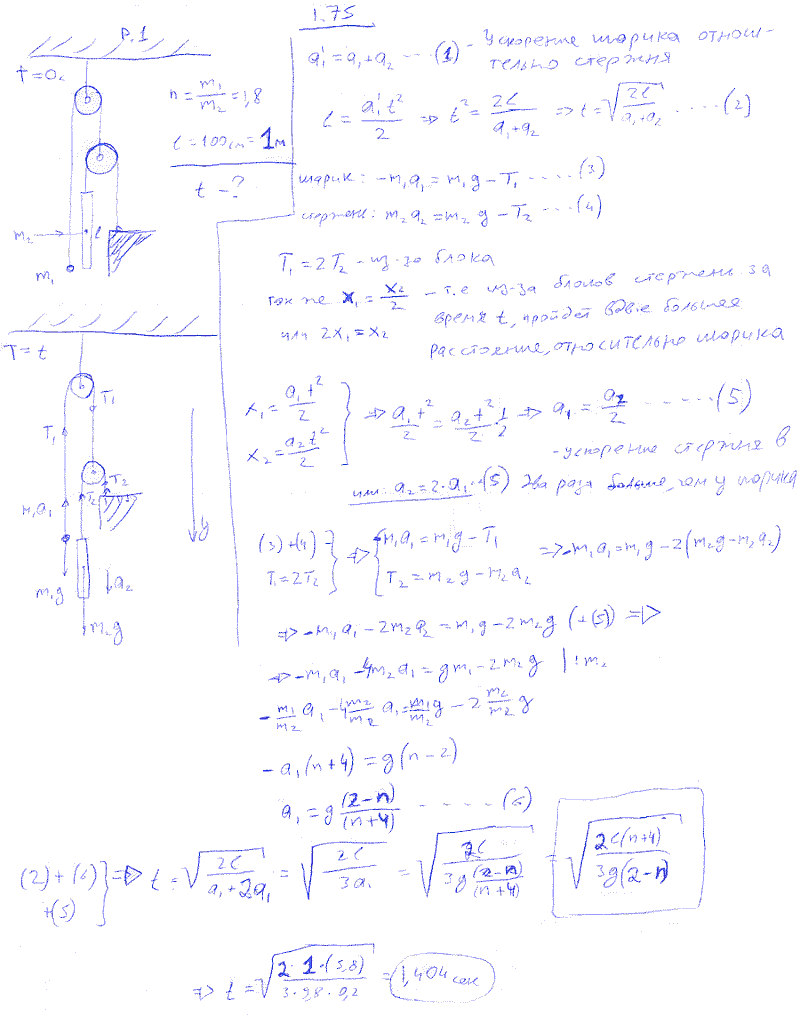 1.75
P.1
t=0c
n = m₁/m₂ = 1,8
l = 100см = 1м
t - ?
m₂
l
m₁
a₁' = a₁ + a₂ ···· (1) - Ускорение шарика относи-
тельно стержня
l = a₁'t²/2 ⇒ t² = 2l/(a₁+a₂) ⇒ t = √(2l/(a₁+a₂)) ····· (2)
шарик: -m₁a₁ = m₁g - T₁ ····· (3)
стержень: m₂a₂ = m₂g - T₂ ···· (4)
T₁ = 2T₂ - из-за блока
так же x₁ = x₂/2 - т.е из-за блоков стержень за
время t, пройдет вдвое большее
или 2x₁ = x₂
расстояние, относительно шарика
T = t
T₁
T₁
T₂
T₂
m₁a₁
m₁g
a₂
m₂g
y
x₁ = a₁t²/2
x₂ = a₂t²/2
⇒ a₁t²/2 = a₂t²/2 · 1/2 ⇒ a₁ = a₂/2 ······ (5)
- ускорение стержня в
или a₂ = 2·a₁ ··(5) два раза больше, чем у шарика
(3)+(4)
T₁=2T₂
⇒ { -m₁a₁ = m₁g - T₁
T₂ = m₂g - m₂a₂
⇒ -m₁a₁ = m₁g - 2(m₂g - m₂a₂)
⇒ -m₁a₁ - 2m₂a₂ = m₁g - 2m₂g (+(5)) ⇒
⇒ -m₁a₁ - 4m₂a₁ = gm₁ - 2m₂g | : m₂
- m₁/m₂ a₁ - 4 m₂/m₂ a₁ = m₁/m₂ g - 2 m₂/m₂ g
-a₁(n+4) = g(n-2)
a₁ = g (2-n)/(n+4) ····· (6)
(2)+(6)
+(5)
⇒ t = √(2l/(a₁+2a₁)) = √(2l/3a₁) = √(2l/(3g(2-n)/(n+4))) = √(2l(n+4)/3g(2-n))
⇒ t = √(2·1·(5,8)/3·9,8·0,2) = 1,404 сек